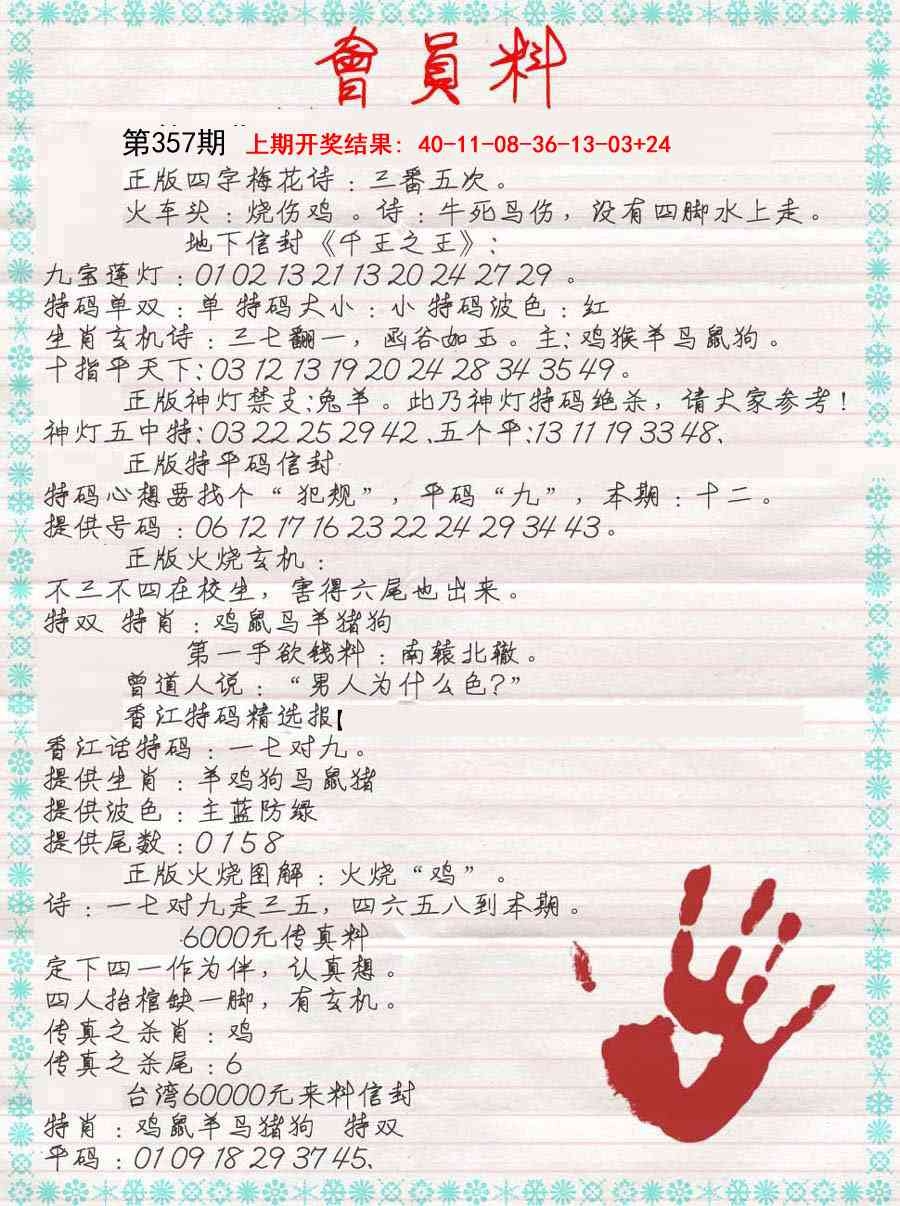 會員料
第357期 上期开奖结果: 40-11-08-36-13-03+24
正版四字梅花诗：三番五次。
火车头：烧伤鸡 。诗：牛死鸟伤，没有四脚水上走。
地下信封《千王之王》：
九宝莲灯：01 02 13 21 13 20 24 27 29 。
特码单双：单 特码大小：小 特码波色：红
生肖玄机诗：三七翻一，函谷如玉。主：鸡猴羊马鼠狗。
十指平天下：03 12 13 19 20 24 28 34 35 49。
正版神灯禁支:兔羊。此乃神灯特码绝杀，请大家参考！
神灯五中特：03 22 25 29 42 、五个平:13 11 19 33 48、
正版特平码信封
特码心想要找个“ 犯规”，平码“九”，本期：十二。
提供号码：06 12 17 16 23 22 24 29 34 43。
正版火烧玄机：
不三不四在校生，害得六尾也出来。
特双 特肖：鸡鼠马羊猪狗
第一手欲钱料：南辕北辙。
曾道人说：“男人为什么色?”
香江特码精选报【
香江话特码：一七对九。
提供生肖：羊鸡狗马鼠猪
提供波色：主蓝防绿
提供尾数：0 1 5 8
正版火烧图解：火烧“鸡”。
诗：一七对九走三五，四六五八到本期。
6000元传真料
定下四一作为伴，认真想。
四人抬棺缺一脚，有玄机。
传真之杀肖：鸡
传真之杀尾：6
台湾60000元来料信封
特肖：鸡鼠羊马猪狗 特双
平码：01 09 18 29 37 45、